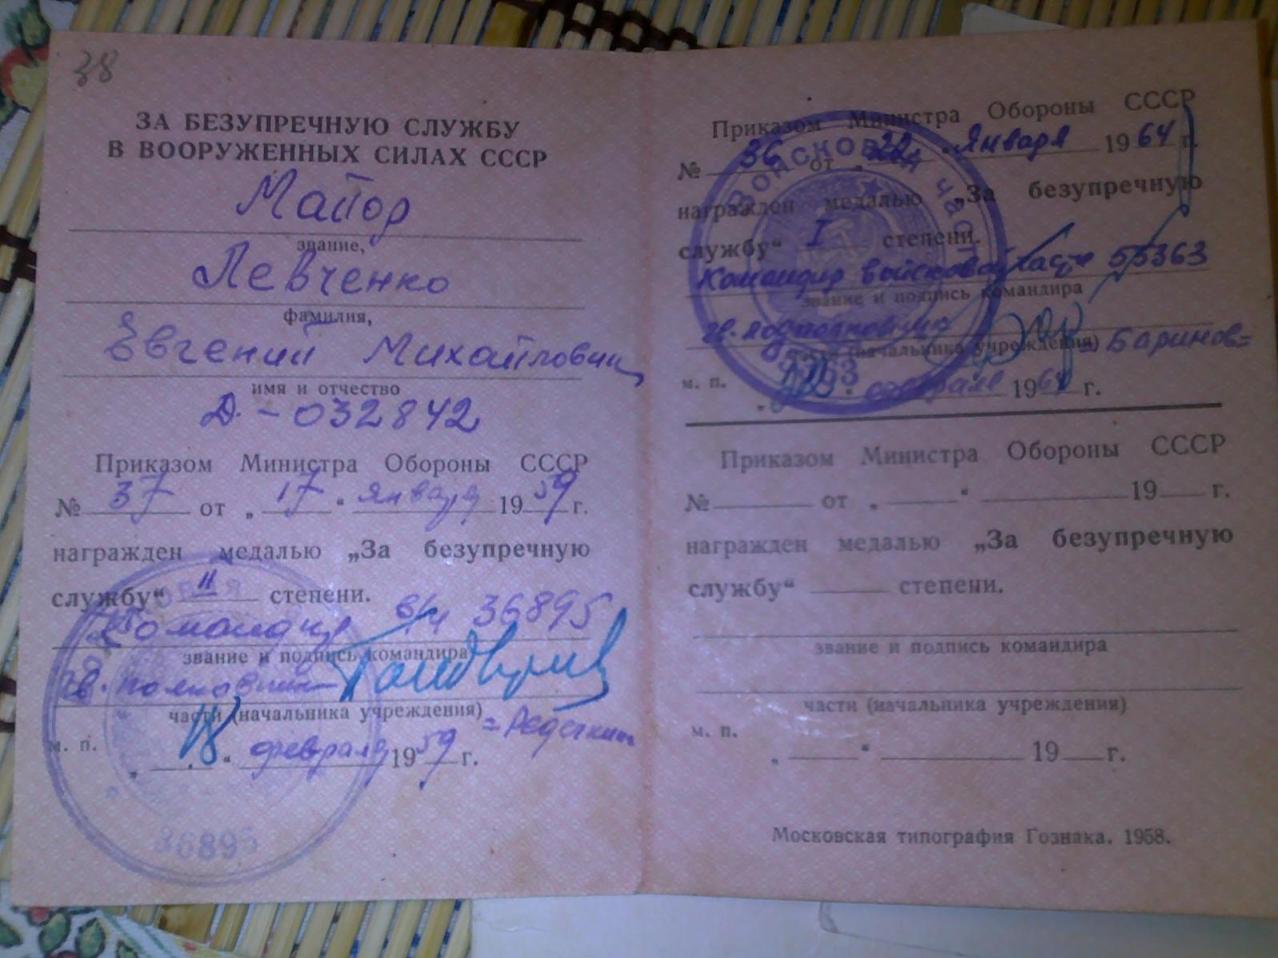 38
ЗА БЕЗУПРЕЧНУЮ СЛУЖБУ
В ВООРУЖЕННЫХ СИЛАХ СССР
Майор
звание,
Левченко
фамилия,
Евгений Михайлович
имя и отчество
Д-032842
Приказом Министра Обороны СССР
№ 37 от „17“ января 1959 г.
награжден медалью „За безупречную
службу“ II степени.
Командир в/ч 36895
звание и подпись командира
гв. полковник
части (начальника учреждения)
м. п.
„18“ февраля 1959 г.
36895
Приказом Министра Обороны СССР
№ 36 от „22“ января 1964 г.
награжден медалью „За безупречную
службу“ I степени.
Командир войсковой части 55363
звание и подпись командира
гв. подполковник -Баринов-
части (начальника учреждения)
м. п.
„ “ февраля 1964 г.
Войсковая часть
Приказом Министра Обороны СССР
№ от „ “ 19 г.
награжден медалью „За безупречную
службу“ степени.
звание и подпись командира
части (начальника учреждения)
м. п.
„ “ 19 г.
Московская типография Гознака. 1958.